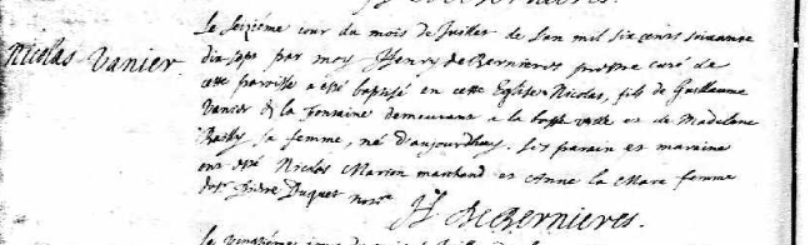 H de Bernieres.
Nicolas Vanier
Le seiziéme iour du mois de Juillet de l'an mil six cents soixante
dix sept par moy Henry de Bernieres prestre curé de
cette paroisse a esté baptisé en cette Eglise Nicolas, fils de Guillaume
Vanier dt la Fontaine demeurant a la basse ville et de Madelene
Bailly sa femme, né d'aujourdhuy. Les parain et maraine
ont esté Nicolas Marion marchand et Anne la Mare femme
de Pierre Duquet nore
H de Bernieres.
Le vingtiéme iour du mois de Juillet de